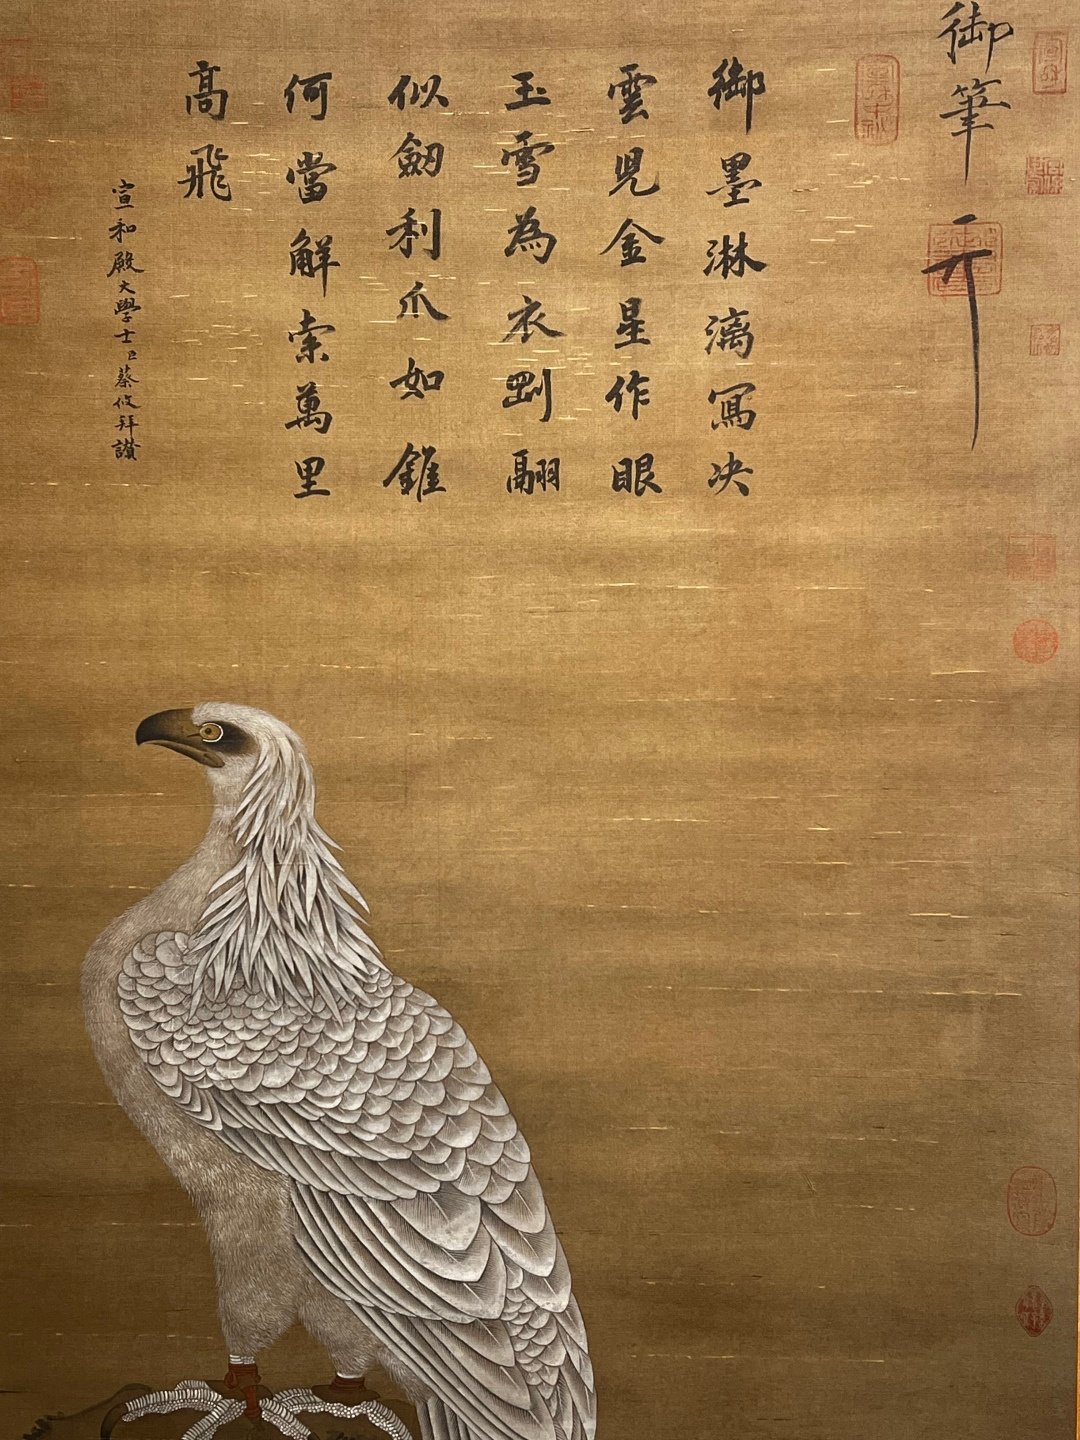 御筆
御墨淋漓寫決
雲兒金星作眼
玉雪為衣剛翮
似劒利爪如錐
何當解索萬里
高飛
宣和殿大學士臣蔡攸拜讚